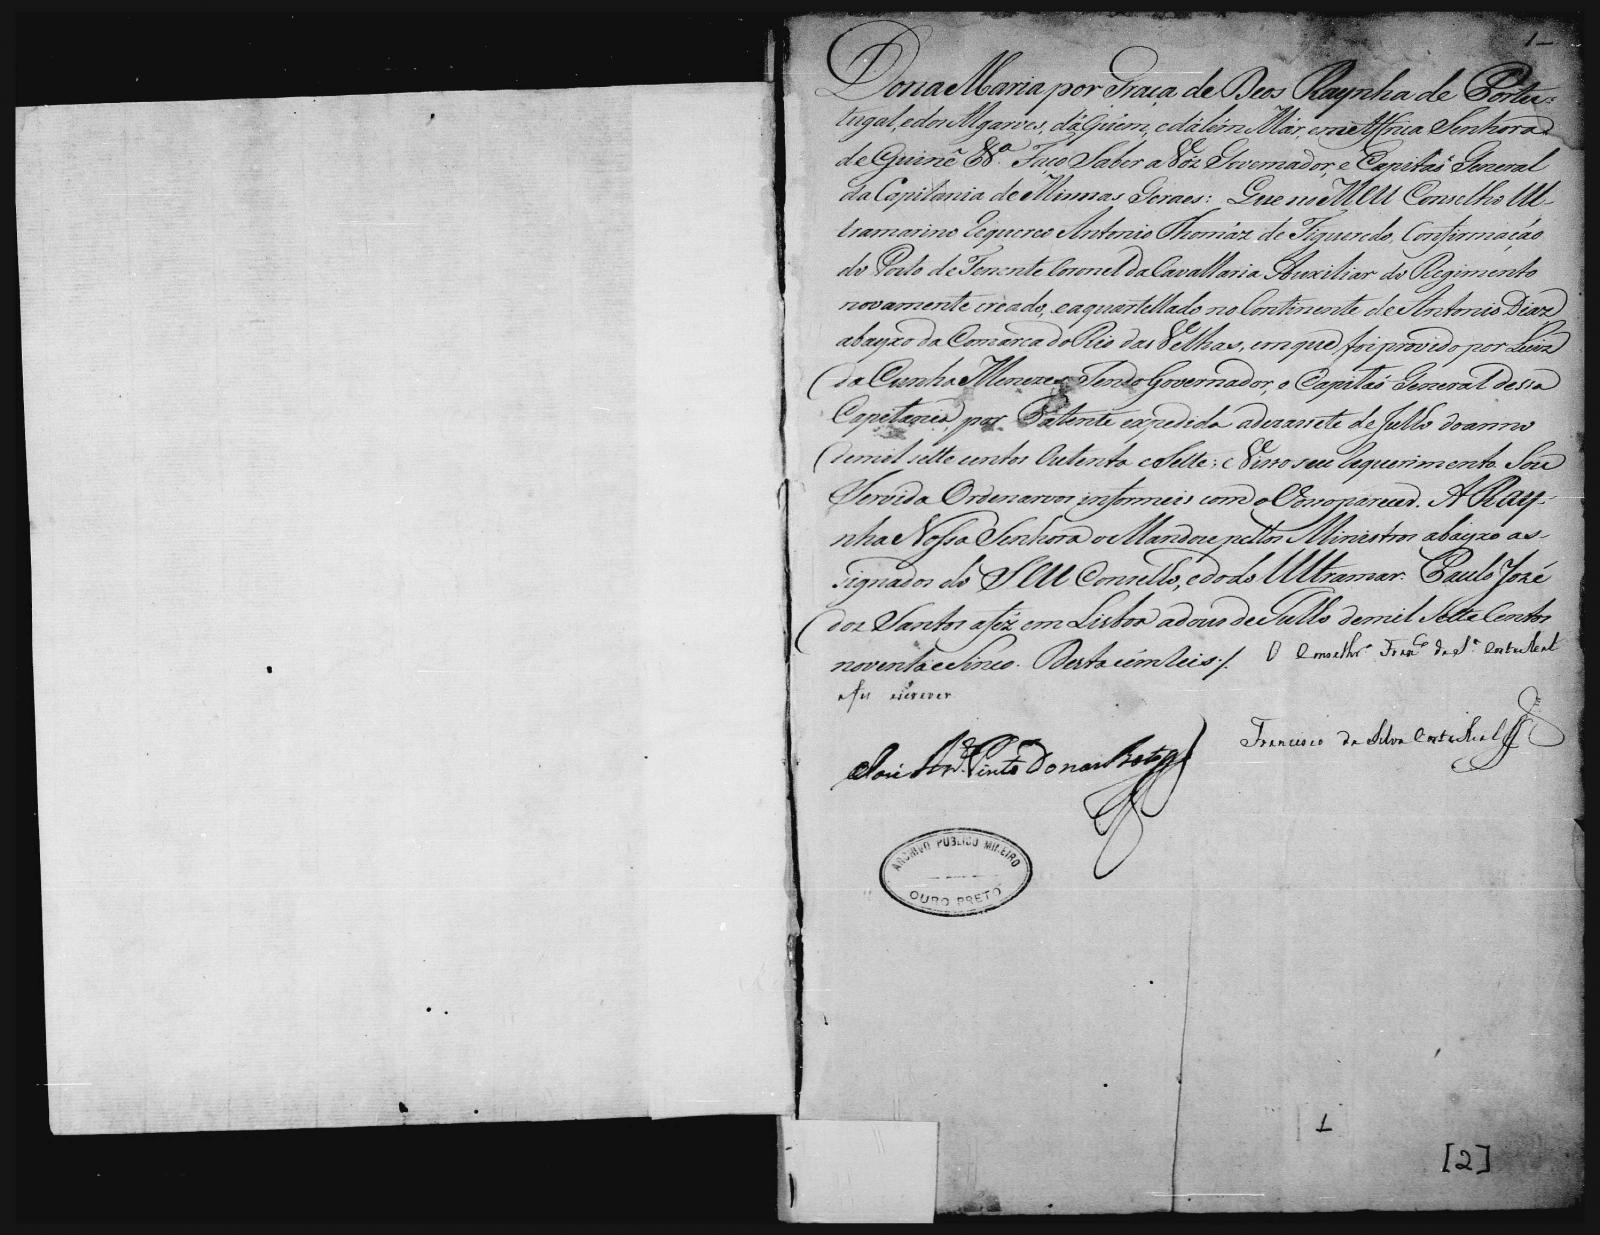 1—
Dona Maria por Graça de Deos Raynha de Portu=
tugal, e dos Algarves, dáquem, e dálem Már, em Affrica Senhora
de Guiné &ª. Faço Saber a Vóz Governador, e Capitaõ General
da Capitania de Minnas Geraes: Que no MEU Conselho Ul-
tramarino Requereo Antonio Thomáz de Figueredo, Confirmaçáo
do Posto de Tenente Coronel da Cavallaria Auxiliar do Regimento
novamente creado, e aquartellado no Continente de Antonio Diaz
abayxo da Comarca do Rio das Velhas, em que foi provido por Luiz
da Cunha Menezes Sendo Governador, e Capitaõ General dessa
Capitania, por Patente expedida a dezassete de Julho do anno
de mil sette centos Outenta e Sette; e Visto seu Requerimento. Sou
Servida Ordenarvos informeis com o Vosso parecer. A Ray-
nha Nossa Senhora o Mandou pellos Ministros abayxo as-
signados do SEU Conselho, e do do Ultramar. Paulo Jozé
dos Santos a fez em Lisboa a dous de Julho de mil Sette Centos
noventa e Sinco. Desta cem Reis./. O Conselhrº Franco da Sª Corte Real
a fes escrever
Francisco da Silva Corte Real
José Pinto Botto
ARCHIVO PUBLICO MINEIRO
OURO PRETO
1
[2]